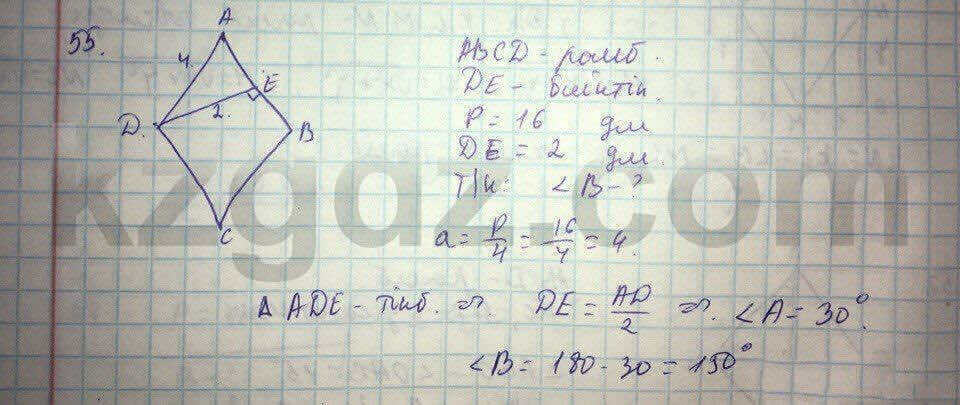 55.
A
4.
E
2.
D.
B
C
ABCD - ромб.
DE - биіктік.
P = 16 дм
DE = 2 дм.
Т/к: ∠B - ?
a = P/4 = 16/4 = 4.
Δ ADE - тікб. ⇒. DE = AD/2 ⇒. ∠A = 30°.
∠B = 180 - 30 = 150°
kzgdz.com